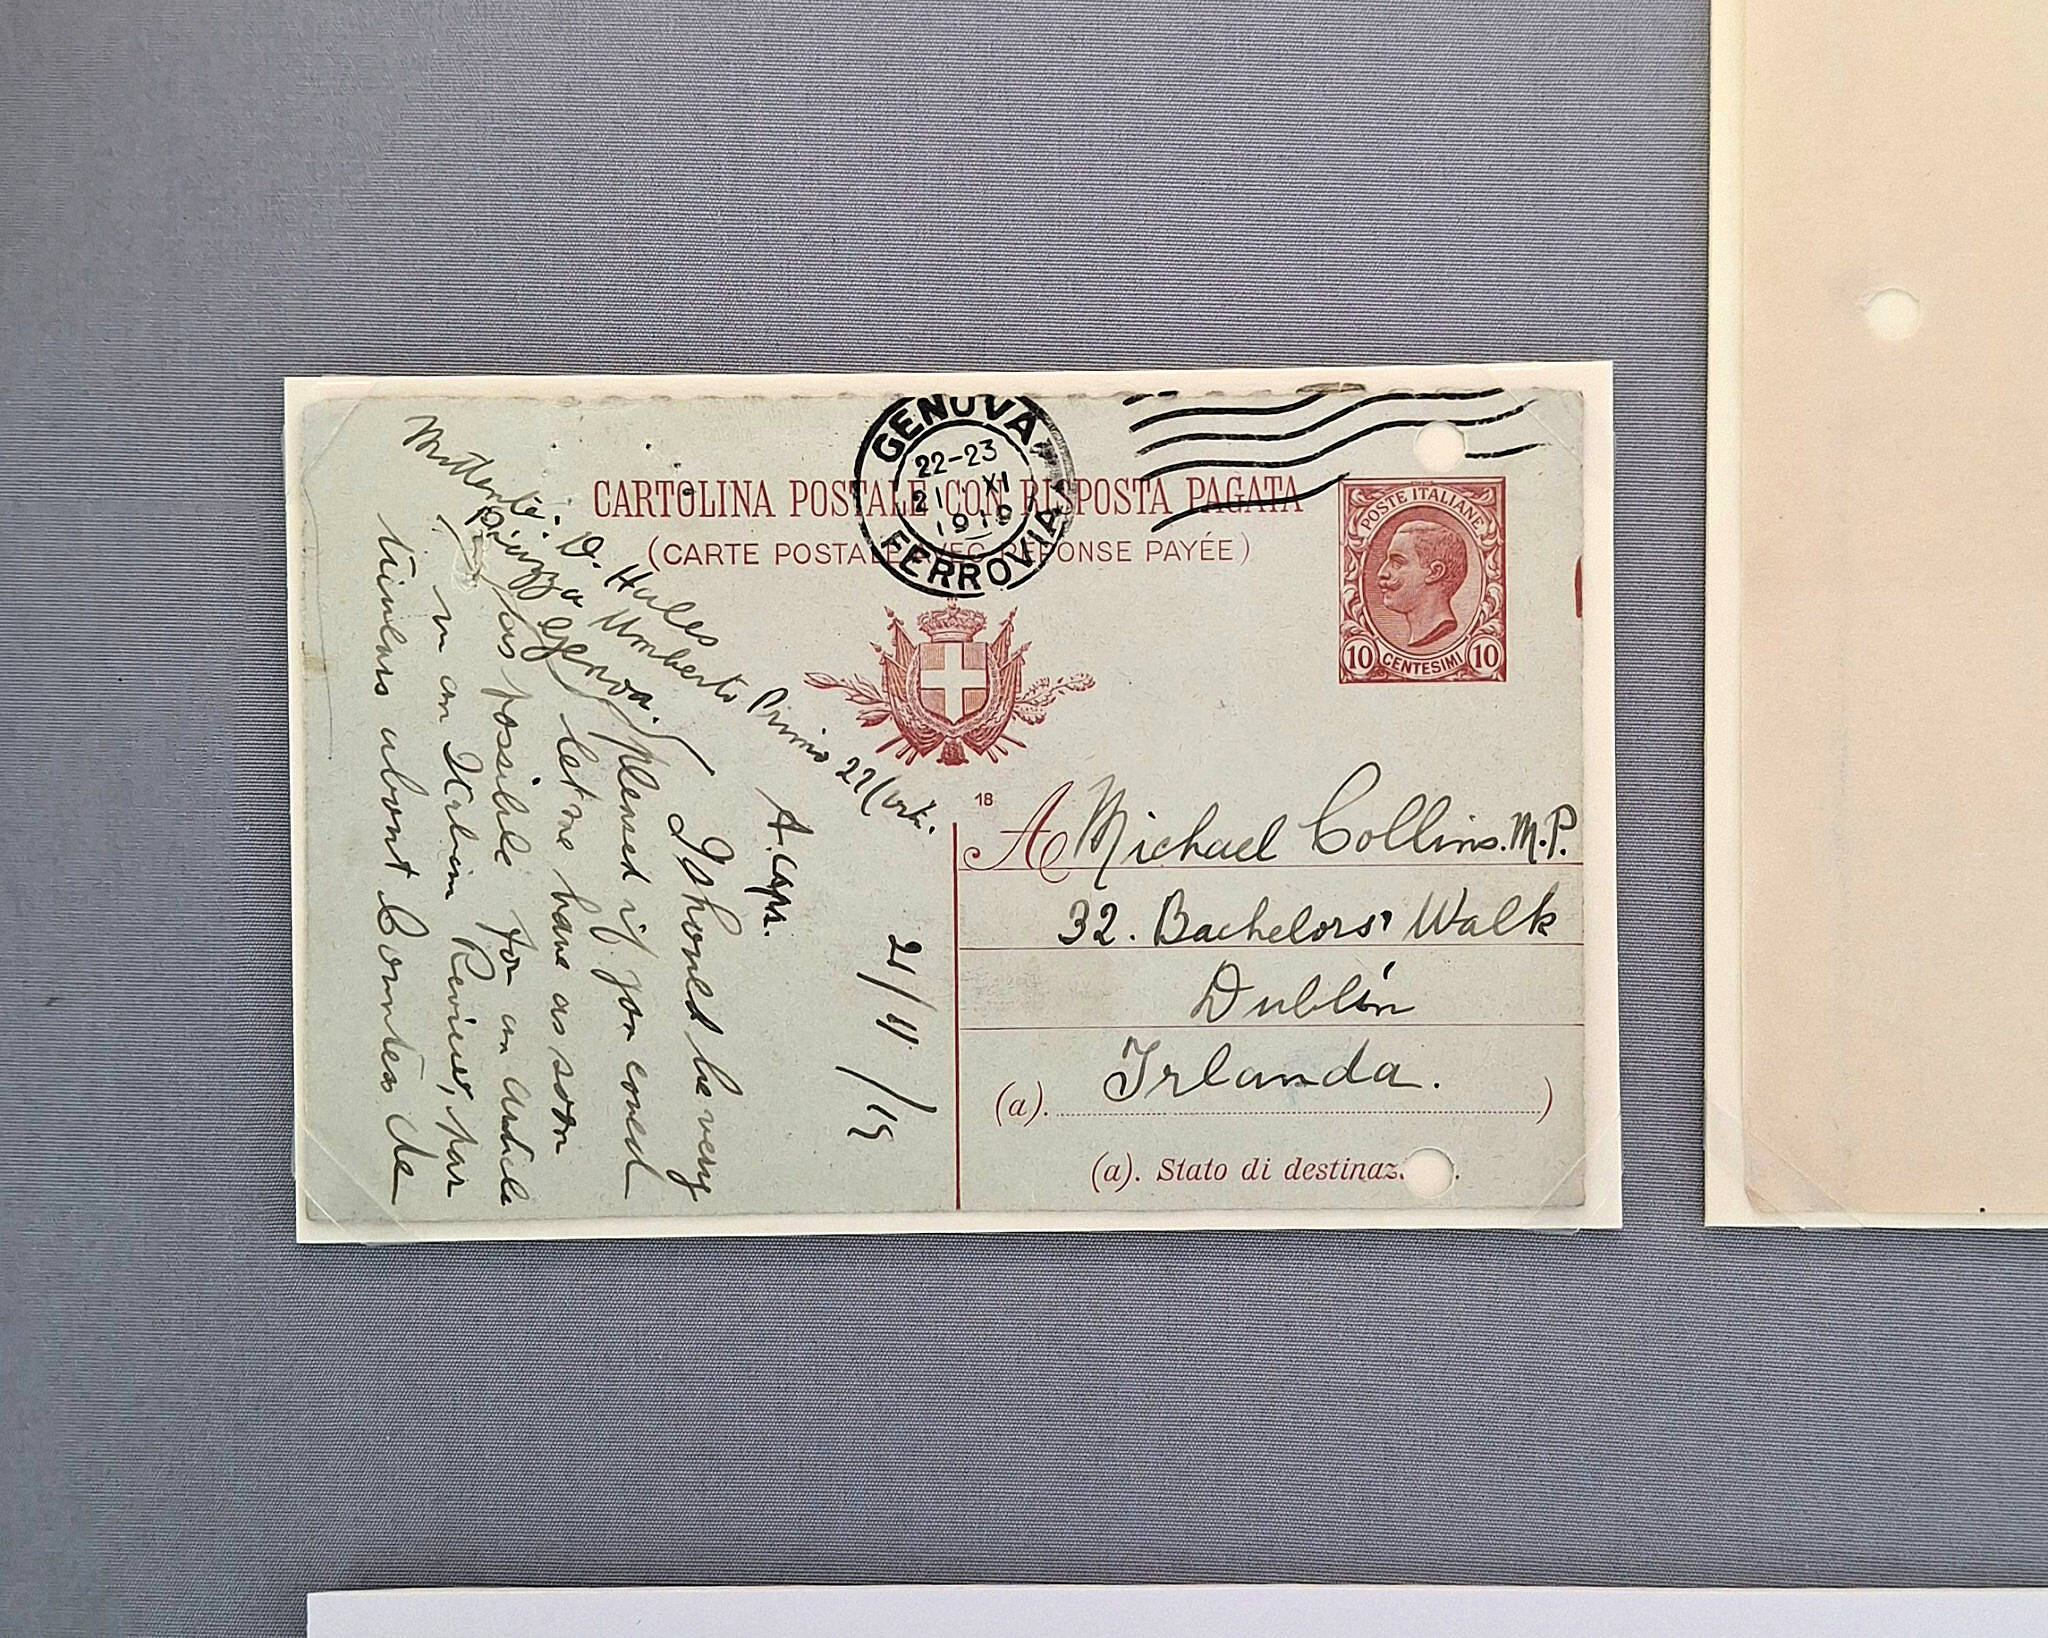 GENOVA
22-23
21 XI
1919
FERROVIA
CARTOLINA POSTALE CON RISPOSTA PAGATA
(CARTE POSTALE AVEC RÉPONSE PAYÉE)
POSTE ITALIANE
10 CENTESIMI 10
18
A Michael Collins. M.P.
32. Bachelors' Walk
Dublin
Irlanda.
(a). )
(a). Stato di destinaz.
Mittente: D. Hales
Piazza Umberto Primo 27/
Genova.
21/11/19
I should be very
pleased if you could
let me have as soon
as possible for an article
in an Italian Review, par
ticulars about Countess de